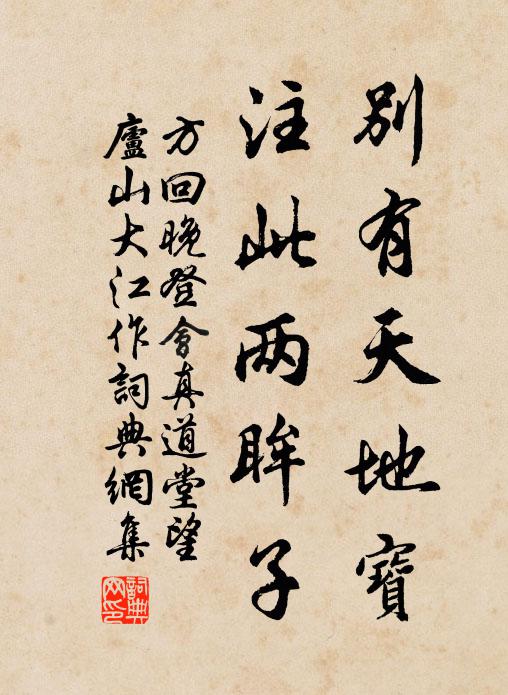 別有天地寶
注此两眸子
方回晚登會真道堂望
廬山大江作詞典網集
詞典網印